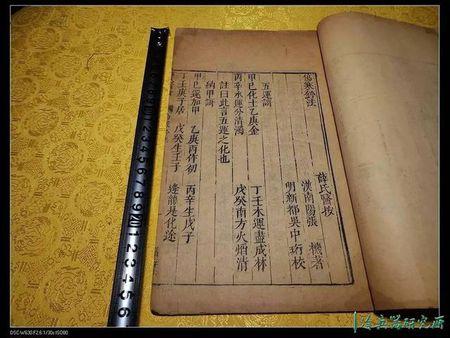 傷寒鈐法
薛氏醫按
漢南陽張 機著
明新都吳中珩校
五運詩
甲己化土乙庚金 丁壬木運盡成林
丙辛水運分清濁 戊癸南方火焰清
註曰此言五運之化也
納甲詩
甲己還加甲 乙庚丙作初 丙辛生戊子
丁壬庚子居 戊癸生壬子
1 2 3 4 5 6 7 8 9 20 1 2 3 4 5 6
DSC-W630 F2.6 1/30s ISO80